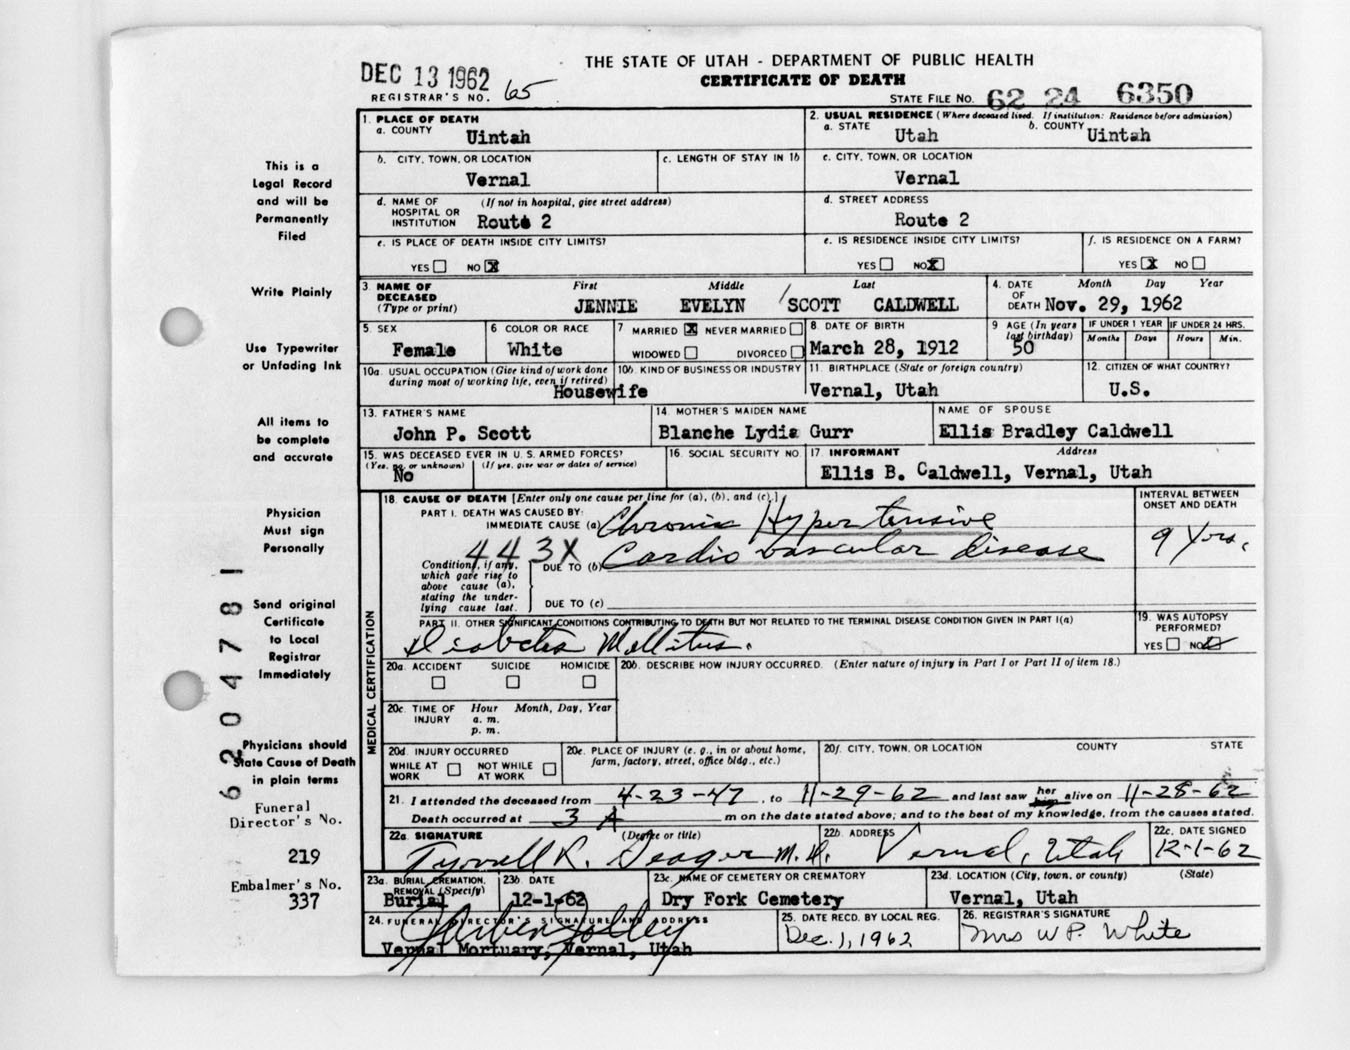 THE STATE OF UTAH - DEPARTMENT OF PUBLIC HEALTH
CERTIFICATE OF DEATH
DEC 13 1962
REGISTRAR'S NO. 65
STATE FILE NO. 62 24 6350
1. PLACE OF DEATH
a. COUNTY
Uintah
2. USUAL RESIDENCE (Where deceased lived. If institution: Residence before admission)
a. STATE b. COUNTY
Utah Uintah
b. CITY, TOWN, OR LOCATION
Vernal
c. LENGTH OF STAY IN 1b
c. CITY, TOWN, OR LOCATION
Vernal
d. NAME OF HOSPITAL OR INSTITUTION (If not in hospital, give street address)
Route 2
d. STREET ADDRESS
Route 2
e. IS PLACE OF DEATH INSIDE CITY LIMITS?
YES NO X
e. IS RESIDENCE INSIDE CITY LIMITS?
YES NO X
f. IS RESIDENCE ON A FARM?
YES X NO
3. NAME OF DECEASED (Type or print)
First Middle Last
JENNIE EVELYN SCOTT CALDWELL
4. DATE OF DEATH Month Day Year
Nov. 29, 1962
5. SEX
Female
6 COLOR OR RACE
White
7 MARRIED X NEVER MARRIED
WIDOWED DIVORCED
8 DATE OF BIRTH
March 28, 1912
9 AGE (In years last birthday)
50
IF UNDER 1 YEAR
Months Days
IF UNDER 24 HRS.
Hours Min.
10a. USUAL OCCUPATION (Give kind of work done during most of working life, even if retired)
Housewife
10b. KIND OF BUSINESS OR INDUSTRY
11. BIRTHPLACE (State or foreign country)
Vernal, Utah
12. CITIZEN OF WHAT COUNTRY?
U.S.
13. FATHER'S NAME
John P. Scott
14. MOTHER'S MAIDEN NAME
Blanche Lydia Gurr
NAME OF SPOUSE
Ellis Bradley Caldwell
15. WAS DECEASED EVER IN U. S. ARMED FORCES?
(Yes, no, or unknown) (If yes, give war or dates of service)
No
16. SOCIAL SECURITY NO.
17. INFORMANT Address
Ellis B. Caldwell, Vernal, Utah
18. CAUSE OF DEATH [Enter only one cause per line for (a), (b), and (c).]
PART I. DEATH WAS CAUSED BY:
IMMEDIATE CAUSE (a) Chronic Hypertensive
443X
Conditions, if any, which gave rise to above cause (a), stating the underlying cause last.
DUE TO (b) Cardio vascular disease
DUE TO (c)
INTERVAL BETWEEN ONSET AND DEATH
9 Yrs.
PART II. OTHER SIGNIFICANT CONDITIONS CONTRIBUTING TO DEATH BUT NOT RELATED TO THE TERMINAL DISEASE CONDITION GIVEN IN PART I(a)
Diabetes Mellitus.
19. WAS AUTOPSY PERFORMED?
YES NO
MEDICAL CERTIFICATION
20a. ACCIDENT SUICIDE HOMICIDE
20b. DESCRIBE HOW INJURY OCCURRED. (Enter nature of injury in Part I or Part II of item 18.)
20c. TIME OF INJURY Hour Month, Day, Year
a. m.
p. m.
20d. INJURY OCCURRED
WHILE AT WORK NOT WHILE AT WORK
20e. PLACE OF INJURY (e. g., in or about home, farm, factory, street, office bldg., etc.)
20f. CITY, TOWN, OR LOCATION COUNTY STATE
21. I attended the deceased from 4-23-47, to 11-29-62 and last saw her him alive on 11-28-62
Death occurred at 3 A m on the date stated above; and to the best of my knowledge, from the causes stated.
22a. SIGNATURE (Degree or title)
Tyrrell R. Seager M.D.
22b. ADDRESS
Vernal, Utah
22c. DATE SIGNED
12-1-62
23a. BURIAL, CREMATION, REMOVAL (Specify)
Burial
23b. DATE
12-1-62
23c. NAME OF CEMETERY OR CREMATORY
Dry Fork Cemetery
23d. LOCATION (City, town, or county) (State)
Vernal, Utah
24. FUNERAL DIRECTOR'S SIGNATURE AND ADDRESS
Vernal Mortuary, Vernal, Utah
25. DATE RECD. BY LOCAL REG.
Dec. 1, 1962
26. REGISTRAR'S SIGNATURE
Mrs W P. White
This is a
Legal Record
and will be
Permanently
Filed
Write Plainly
Use Typewriter
or Unfading Ink
All items to
be complete
and accurate
Physician
Must sign
Personally
Send original
Certificate
to Local
Registrar
Immediately
Physicians should
State Cause of Death
in plain terms
Funeral
Director's No.
219
Embalmer's No.
337
6204781